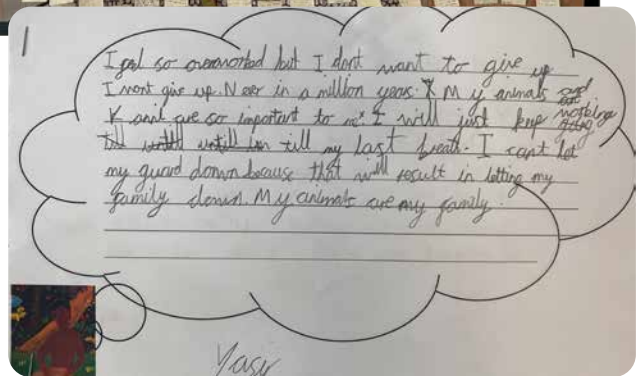 I feel so overworked but I dont want to give up
I wont give up. Never in a million years. My animals and
K aant are so important to me I will just keep working
till till my last breath. I cant let
my guard down because that will result in letting my
family down. My animals are my family.
Yasir